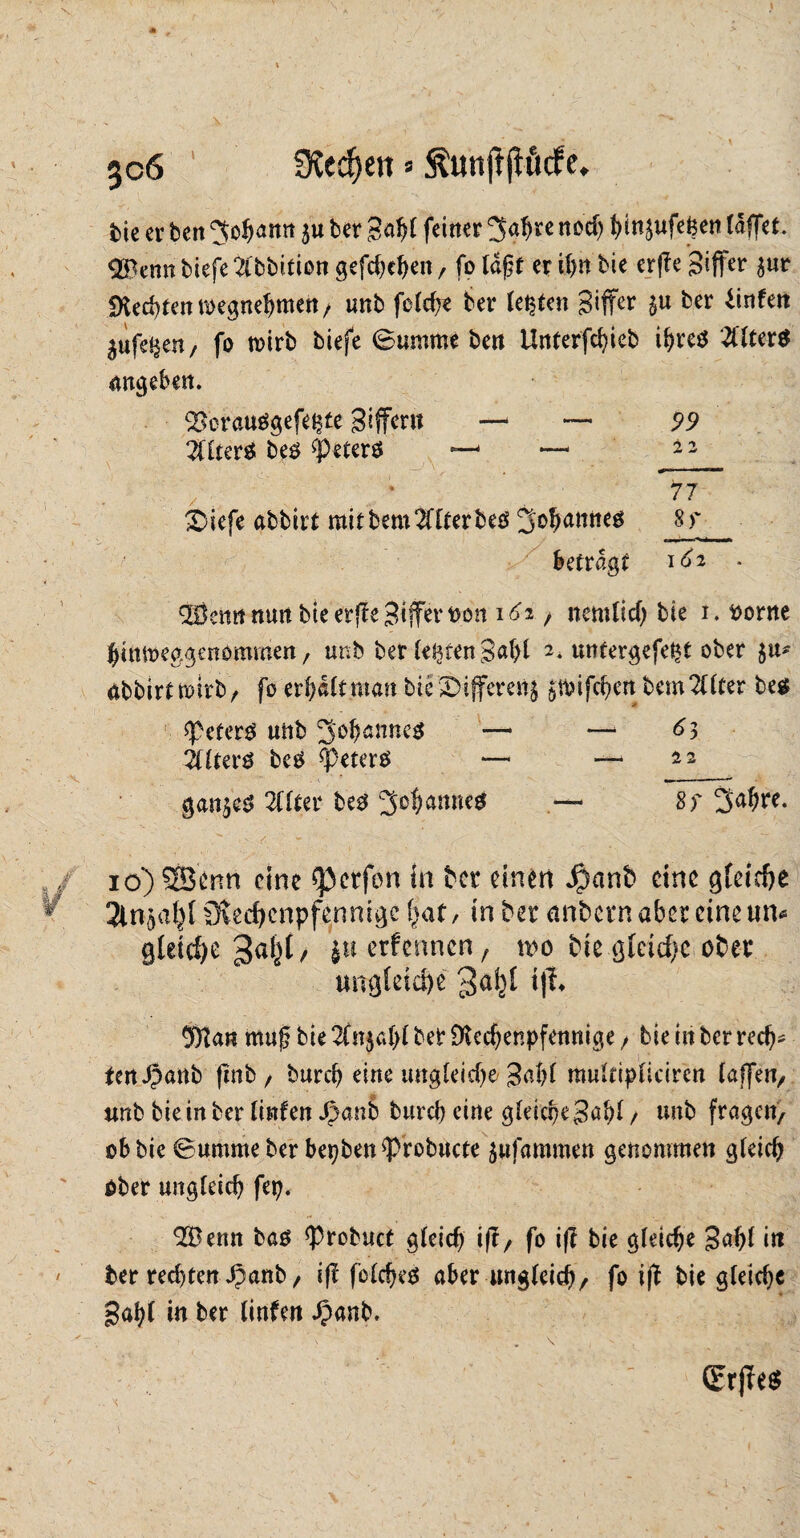 306 Rechen-Kunststücke.
die er den Johann zu der Zahl seiner Jahre noch hinzusetzen lässet.
Wenn diese Addition geschehen, so läßt er ihn die erste Ziffer zur
Rechten wegnehmen, und solche der letzten Ziffer zu der Linken
zusetzen, so wird diese Summe den Unterschied ihres Alters
angeben.
Vorausgesetzte Ziffern — — 99
Alters des Peters — — 22
77
Diese addirt mit dem Alter des Johannes 85
beträgt 162.
Wenn nun die erste Ziffer von 162, nemlich die 1. vorne
hinweggenommen, und der letzten Zahl 2. untergesetzt oder zu-
addirt wird, so erhält man die Differenz zwischen dem Alter des
Peters und Johannes — — 63
Alters des Peters — — 22
ganzes Alter des Johannes — 85 Jahre.
10) Wenn eine Person in der einen Hand eine gleiche
Anzahl Rechenpfennige hat, in der andern aber eine un-
gleiche Zahl, zu erkennen, wo die gleiche oder
ungleiche Zahl ist.
Man muß die Anzahl der Rechenpfennige, die in der rech-
ten Hand sind, durch eine ungleiche Zahl multipliciren lassen,
und die in der linken Hand durch eine gleiche Zahl, und fragen,
ob die Summe der beyden Producte zusammen genommen gleich
oder ungleich sey.
Wenn das Product gleich ist, so ist die gleiche Zahl in
der rechten Hand, ist solches aber ungleich, so ist die gleiche
Zahl in der linken Hand.
Erstes